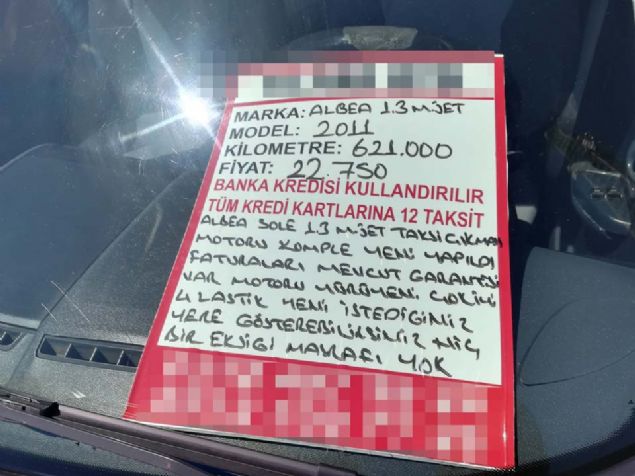 MARKA: ALBEA 1.3 MİJET
MODEL: 2011
KİLOMETRE: 621.000
FİYAT: 22.750
BANKA KREDİSİ KULLANDIRILIR
TÜM KREDİ KARTLARINA 12 TAKSİT
ALBEA SOLE 1.3 MİJET TAKSİ ÇIKMASI
MOTORU KOMPLE YENİ YAPILDI
FATURALARI MEVCUT GARANTİSİ
VAR MOTORU YÜRÜMENİ
4 LASTİK YENİ İSTEDİGİNİZ
YERE GÖSTEREBİLİRSİNİZ HİÇ
BİR EKSİGİ MASRAFI YOK